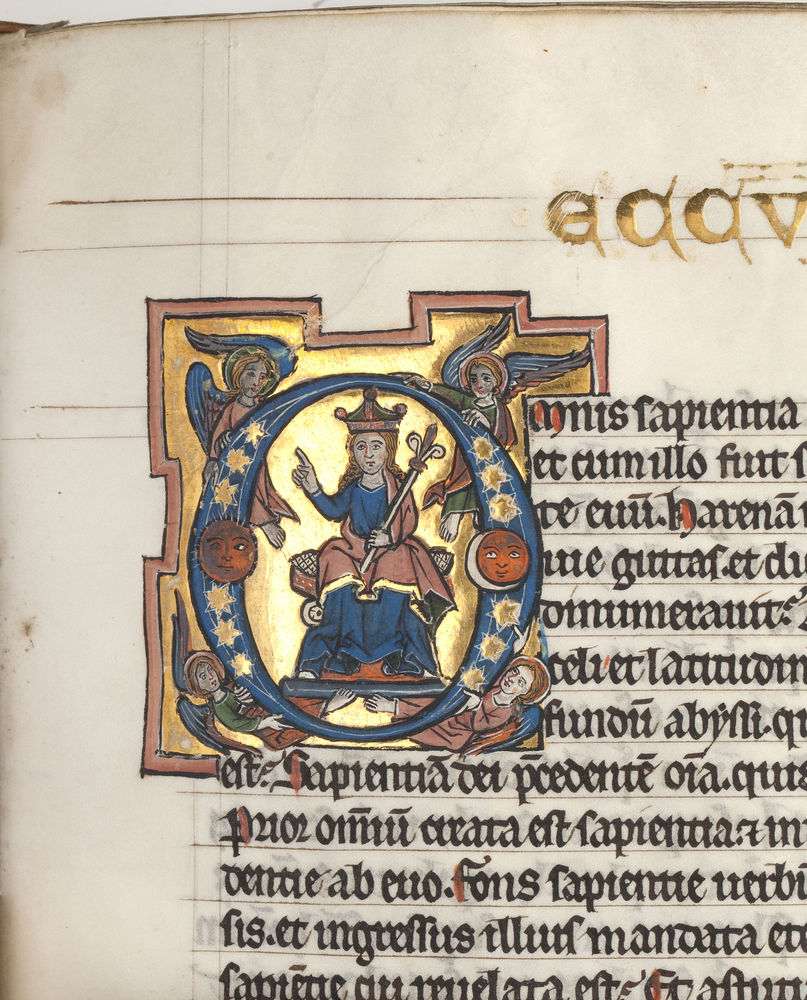 ECCV
Omnis sapientia
et cum illo fuit s
te euū. harenā
uie guttas. et di
dinumerauit:
celi et latitudin
fundū abyssi. q
est: Sapientiā dei p̄cedentē oīa. qui
Prior omīū creata est sapientia: ⁊ in
dentie ab euo. Fons sapientie uerbū
sis. et ingressus illius mandata ete
sapiētie cui reuelata est: Et astuti